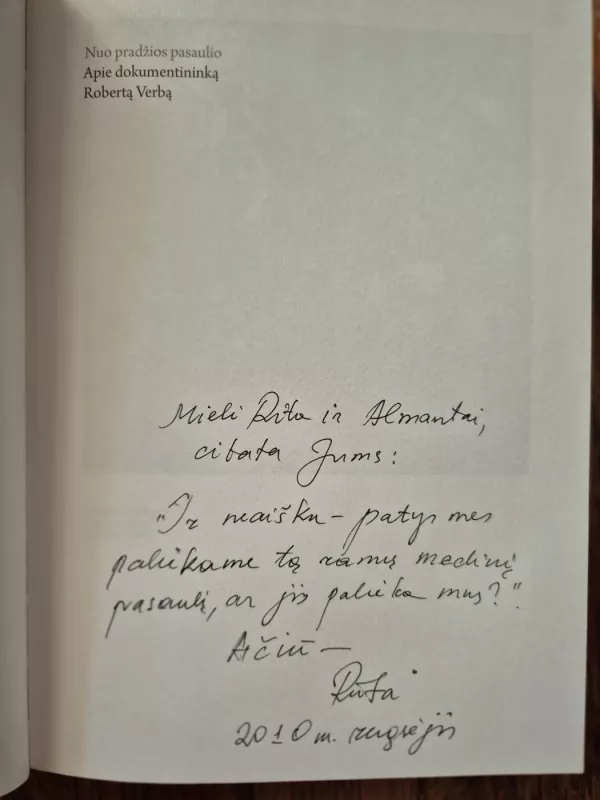 Nuo pradžios pasaulio
Apie dokumentininką
Robertą Verbą
Mieli Rita ir Almantai,
citata Jums:
"Ir neaišku – patys mes
paliekame tą ramų medinį
pasaulį, ar jis palieka mus?".
Ačiū –
Rūta
2010 m. rugsėjis